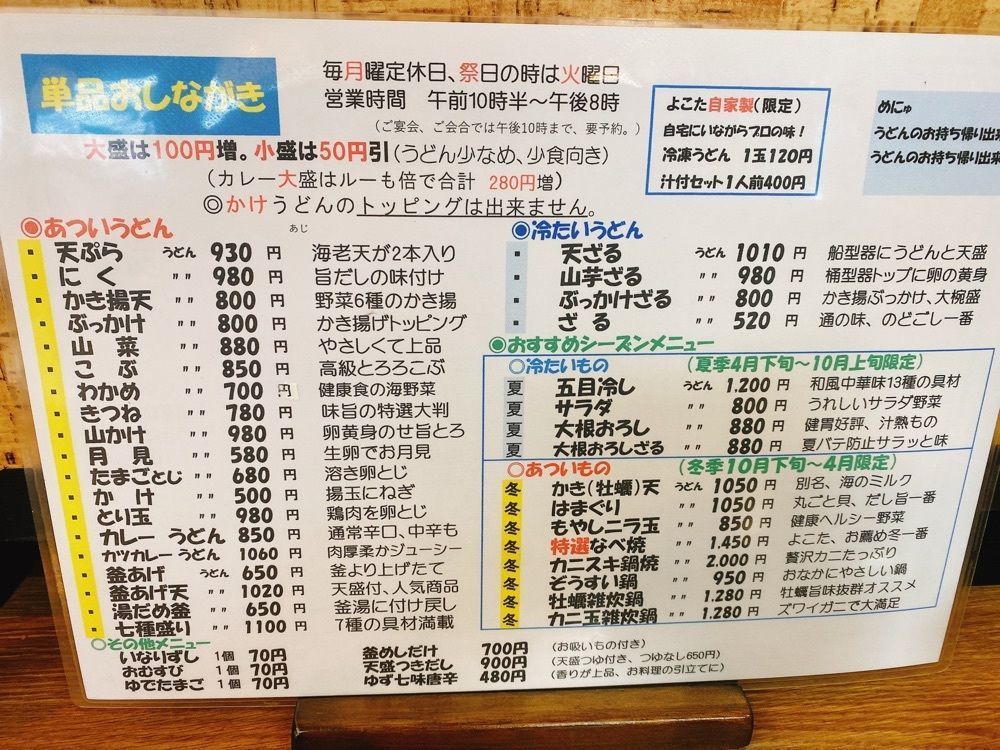 単品おしながき
毎月曜定休日、祭日の時は火曜日
営業時間 午前10時半～午後8時
（ご宴会、ご会合では午後10時まで、要予約。）
大盛は100円増。小盛は50円引（うどん少なめ、少食向き）
（カレー大盛はルーも倍で合計 280円増）
◎かけうどんのトッピングは出来ません。
よこた自家製（限定）
自宅にいながらプロの味！
冷凍うどん 1玉120円
汁付セット1人前400円
めにゅ
うどんのお持ち帰り出来
うどんのお持ち帰り出来
◎あついうどん
あじ
天ぷら うどん 930円 海老天が2本入り
にく 〃 980円 旨だしの味付け
かき揚天 〃 800円 野菜6種のかき揚
ぶっかけ 〃 800円 かき揚げトッピング
山菜 〃 880円 やさしくて上品
こぶ 〃 850円 高級とろろこぶ
わかめ 〃 700円 健康食の海野菜
きつね 〃 780円 味旨の特選大判
山かけ 〃 980円 卵黄身のせ旨とろ
月見 〃 580円 生卵でお月見
たまごとじ 〃 680円 溶き卵とじ
かけ 〃 500円 揚玉にねぎ
とり玉 〃 980円 鶏肉を卵とじ
カレーうどん 850円 通常辛口、中辛も
カツカレーうどん 1060円 肉厚柔かジューシー
釜あげ うどん 650円 釜より上げたて
釜あげ天 〃 1020円 天盛付、人気商品
湯だめ釜 〃 650円 釜湯に付け戻し
七種盛り 〃 1100円 7種の具材満載
◎冷たいうどん
天ざる うどん 1010円 船型器にうどんと天盛
山芋ざる 〃 980円 桶型器トップに卵の黄身
ぶっかけざる 〃 800円 かき揚ぶっかけ、大椀盛
ざる 〃 520円 通の味、のどごし一番
◎おすすめシーズンメニュー
○冷たいもの （夏季4月下旬～10月上旬限定）
夏 五目冷し うどん 1,200円 和風中華味13種の具材
夏 サラダ 〃 800円 うれしいサラダ野菜
夏 大根おろし 〃 880円 健胃好評、汁熱もの
夏 大根おろしざる 〃 880円 夏バテ防止サラッと味
○あついもの （冬季10月下旬～4月限定）
冬 かき（牡蠣）天 うどん 1050円 別名、海のミルク
冬 はまぐり 〃 1050円 丸ごと貝、だし旨一番
冬 もやしニラ玉 〃 850円 健康ヘルシー野菜
冬 特選なべ焼 〃 1,450円 よこた、お薦め冬一番
冬 カニスキ鍋焼 〃 2,000円 贅沢カニたっぷり
冬 ぞうすい鍋 〃 950円 おなかにやさしい鍋
冬 牡蠣雑炊鍋 〃 1,280円 牡蠣旨味抜群オススメ
冬 カニ玉雑炊鍋 〃 1,280円 ズワイガニで大満足
○その他メニュー
いなりずし 1個 70円
おむすび 1個 70円
ゆでたまご 1個 70円
釜めしだけ 700円 （お吸いもの付き）
天盛つきだし 900円 （天盛つゆ付き、つゆなし650円）
ゆず七味唐辛 480円 （香りが上品、お料理の引立てに）